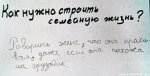 Как нужно строить
семейную жизнь?
Говорить жене, что она краси-
вая, даже если она похожа
на грузовик